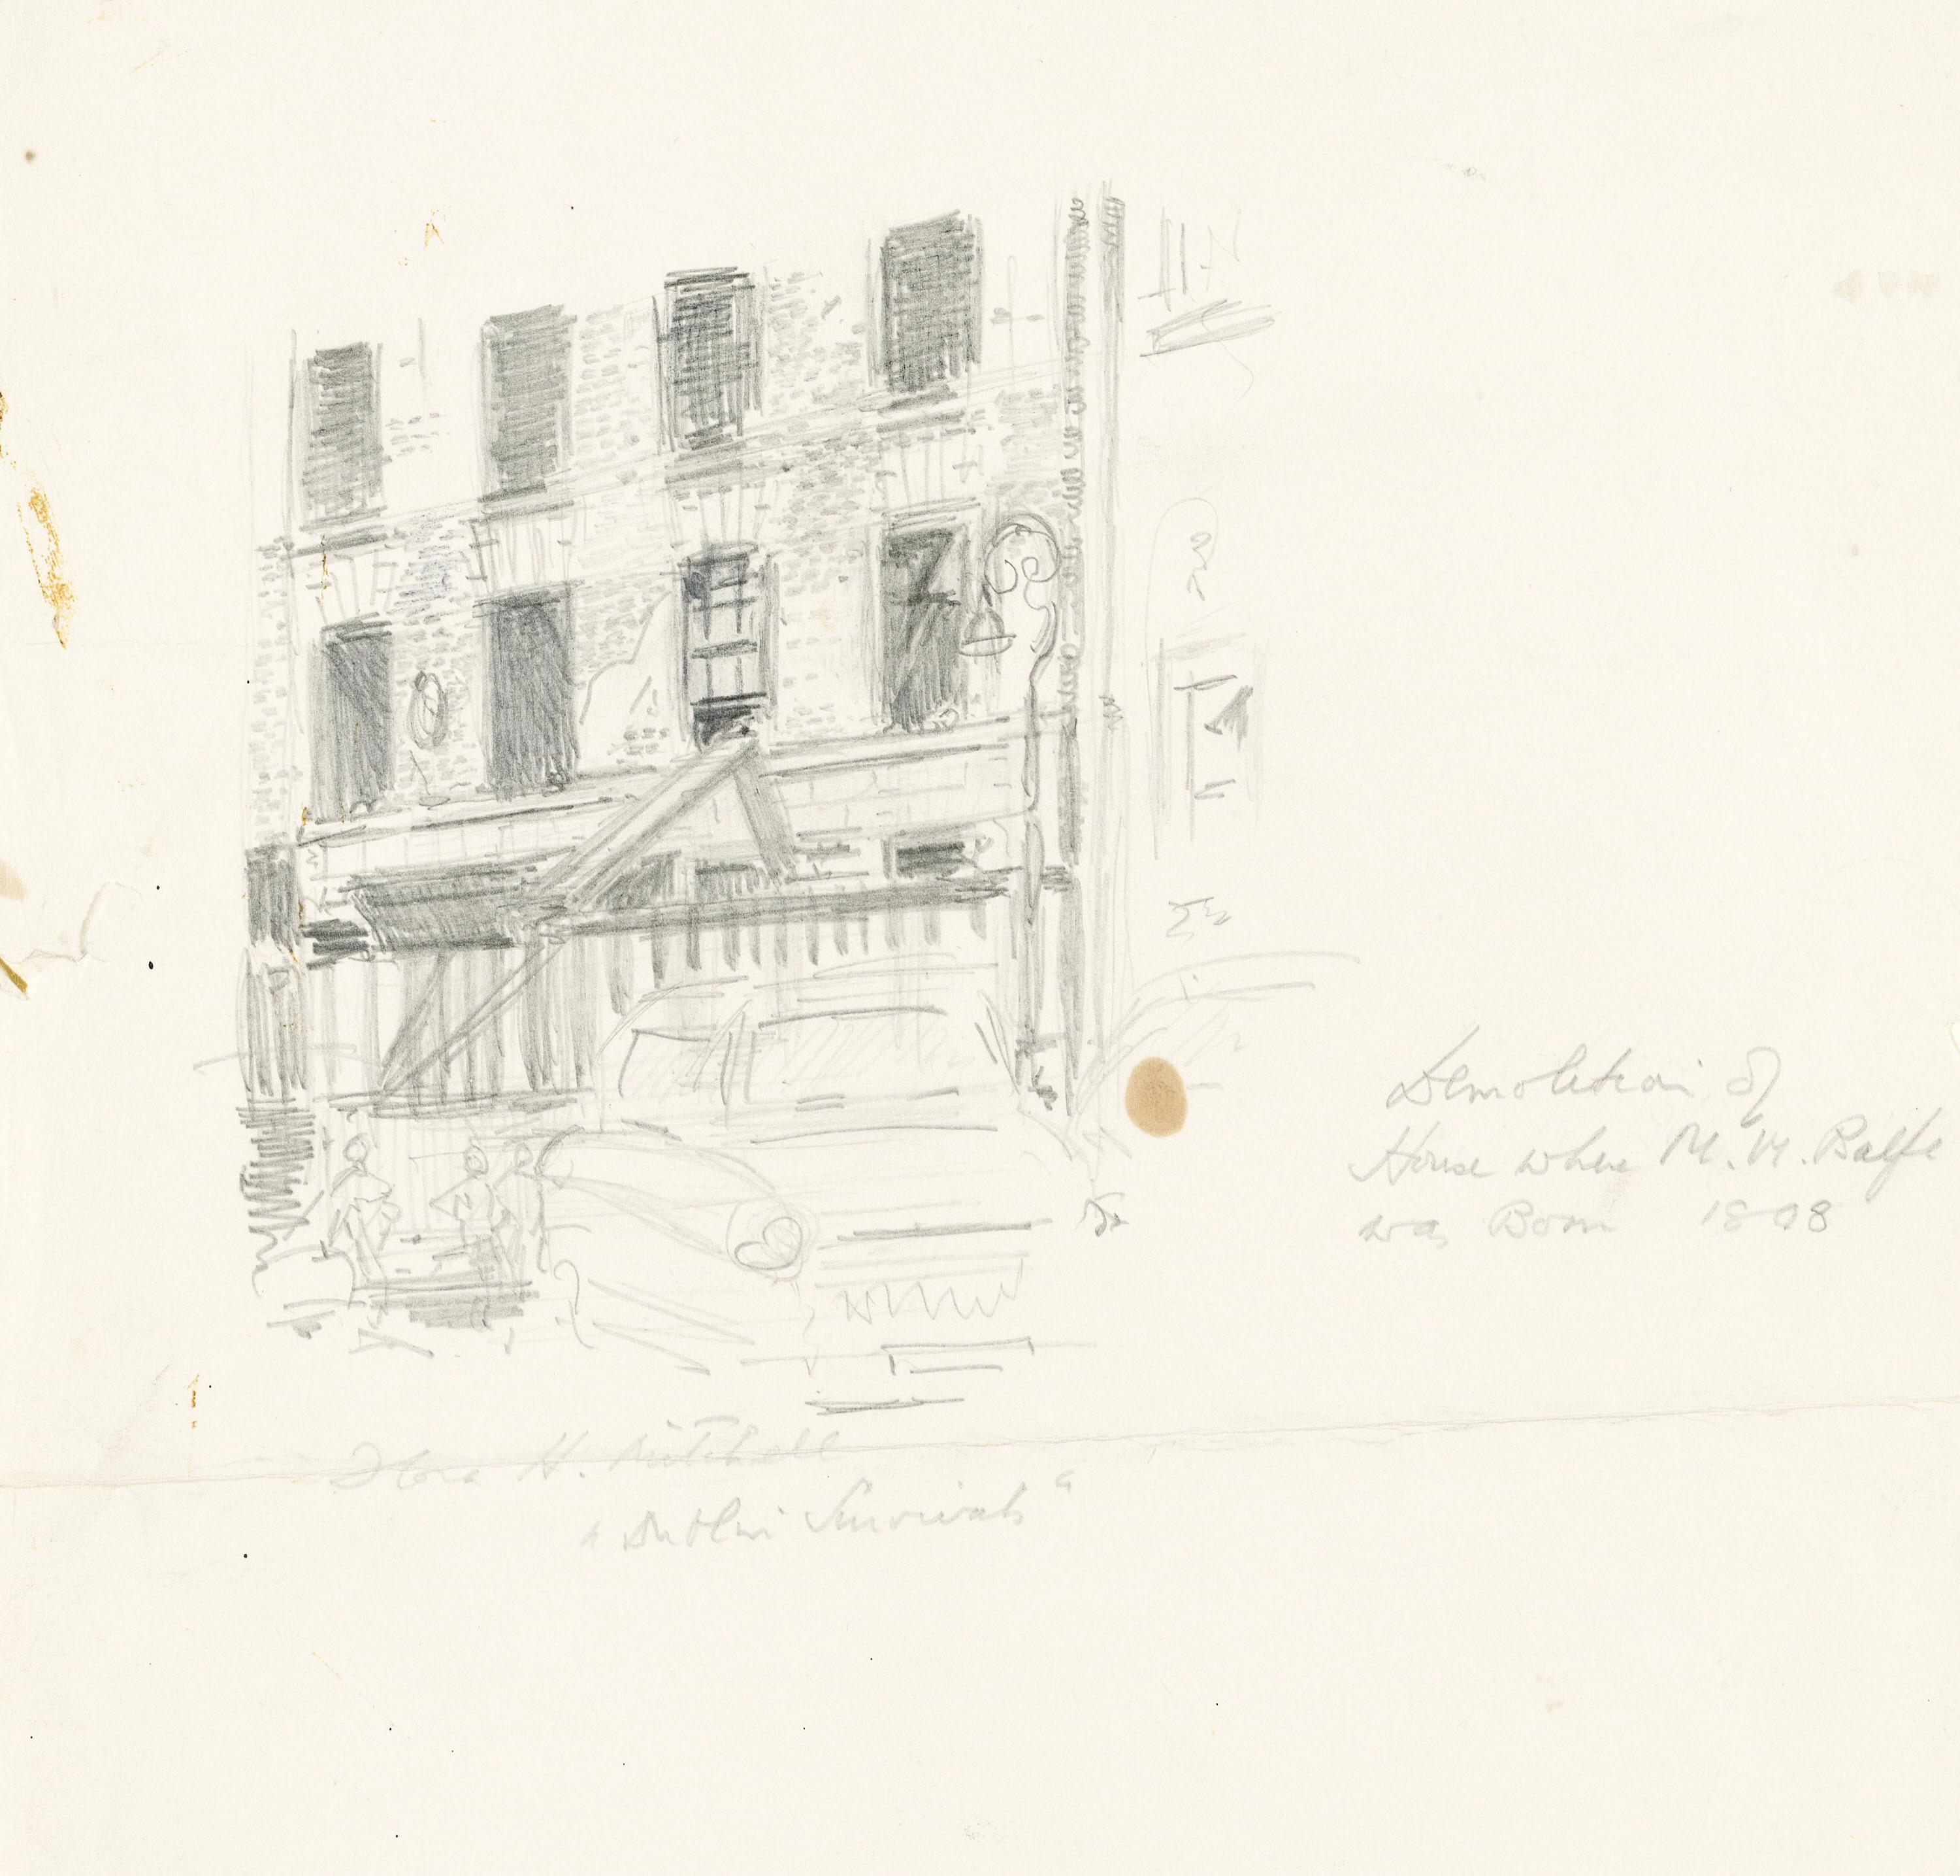 Demolition of
House where M. W. Balfe
was Born 1808
Flora H. Mitchell
"Dublin Survivals"